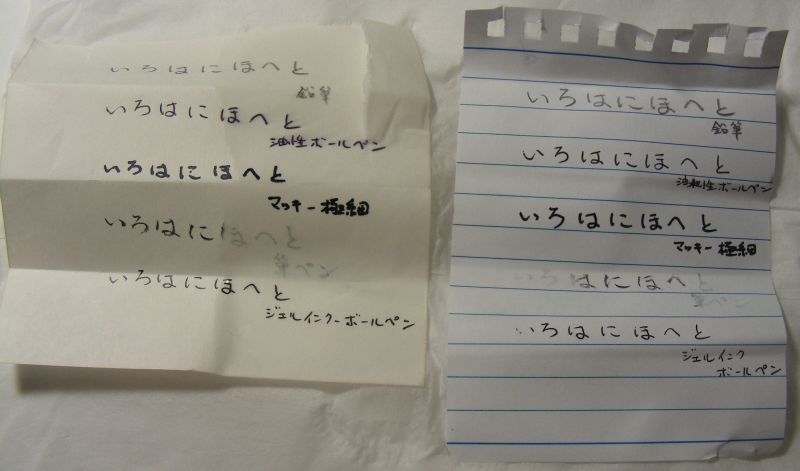 いろはにほへと
鉛筆
いろはにほへと
油性ボールペン
いろはにほへと
マッキー極細
いろはにほへと
筆ペン
いろはにほへと
ジェルインクーボールペン
いろはにほへと
鉛筆
いろはにほへと
油性ボールペン
いろはにほへと
マッキー極細
いろはにほへと
筆ペン
いろはにほへと
ジェルインク
ボールペン